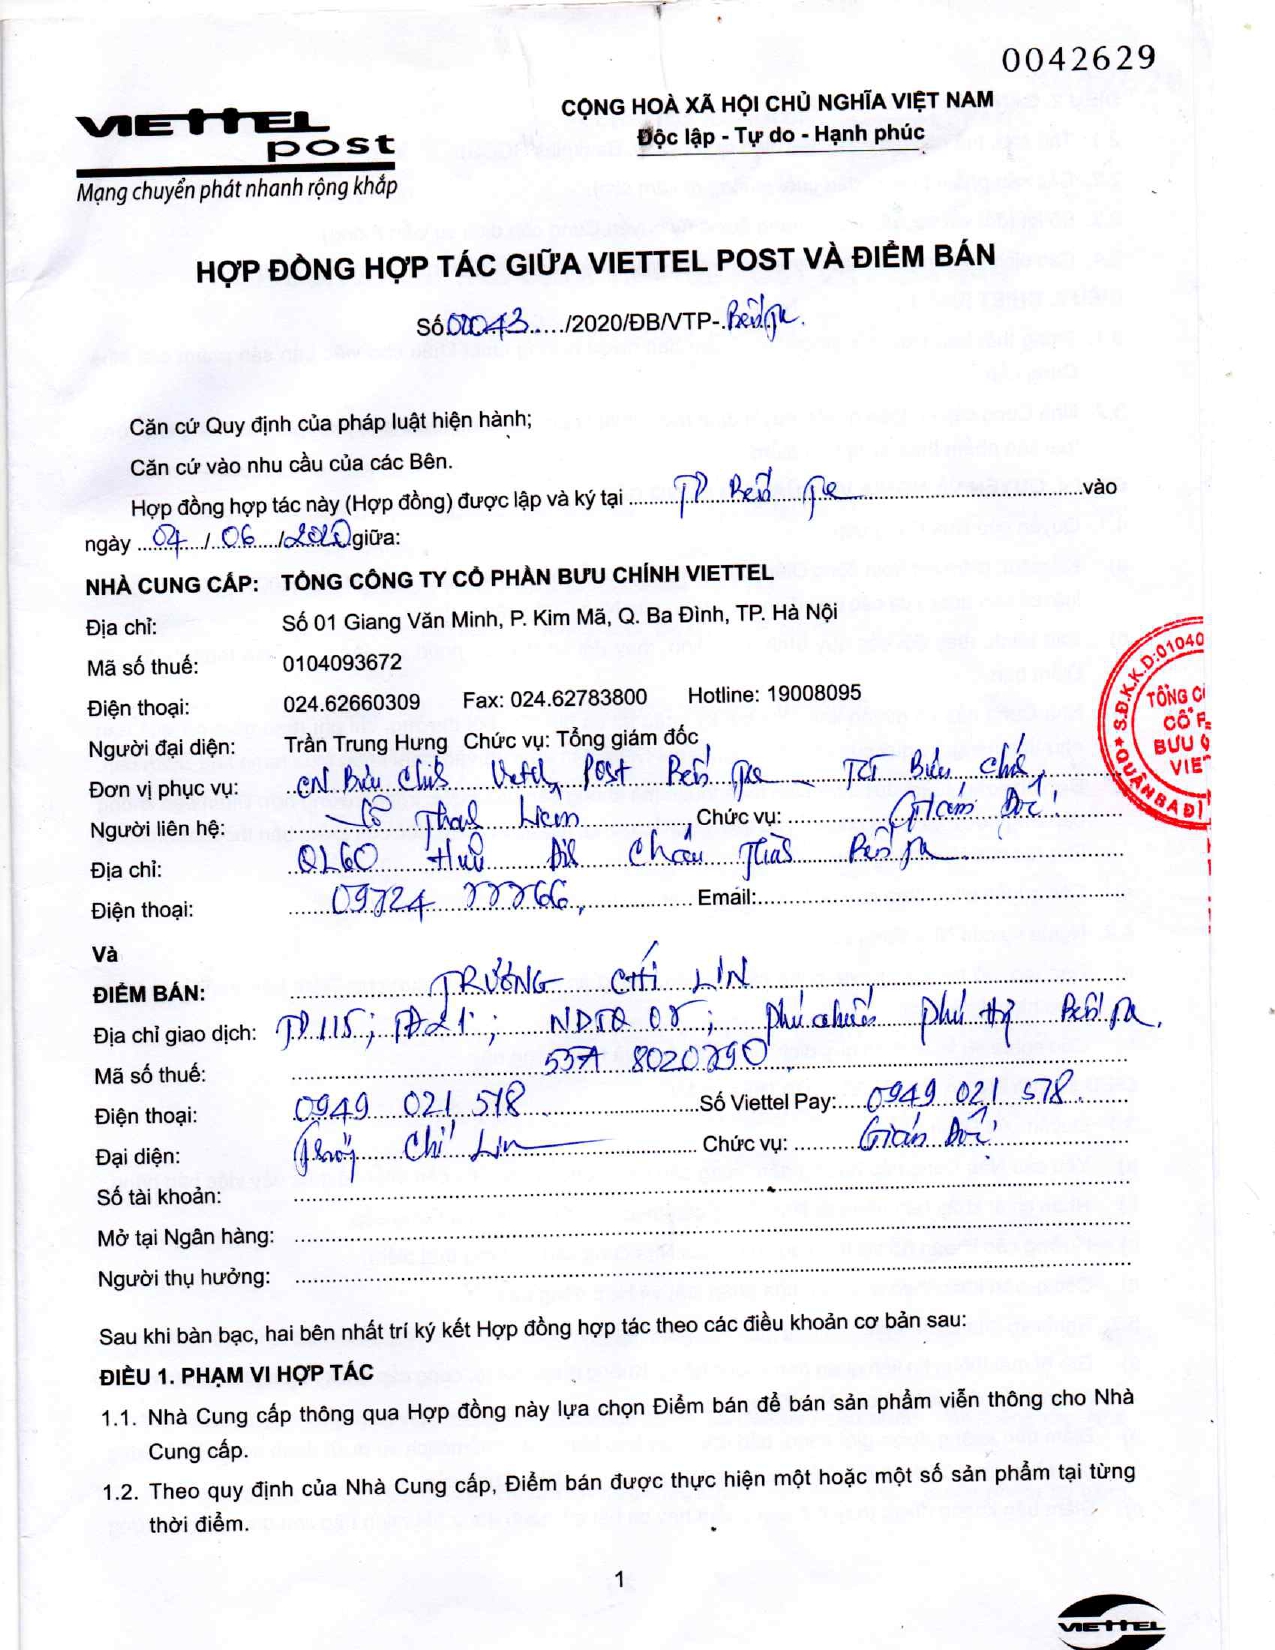 0042629
VIETTEL
post
Mạng chuyển phát nhanh rộng khắp
CỘNG HOÀ XÃ HỘI CHỦ NGHĨA VIỆT NAM
Độc lập - Tự do - Hạnh phúc
HỢP ĐỒNG HỢP TÁC GIỮA VIETTEL POST VÀ ĐIỂM BÁN
Số ...../2020/ĐB/VTP-.Bến Tre.
Căn cứ Quy định của pháp luật hiện hành;
Căn cứ vào nhu cầu của các Bên.
Hợp đồng hợp tác này (Hợp đồng) được lập và ký tại ........TP Bến Tre........vào
ngày ....04..../..06..../2020 giữa:
NHÀ CUNG CẤP: TỔNG CÔNG TY CỔ PHẦN BƯU CHÍNH VIETTEL
Địa chỉ: Số 01 Giang Văn Minh, P. Kim Mã, Q. Ba Đình, TP. Hà Nội
Mã số thuế: 0104093672
Điện thoại: 024.62660309 Fax: 024.62783800 Hotline: 19008095
Người đại diện: Trần Trung Hưng Chức vụ: Tổng giám đốc
Đơn vị phục vụ: CN Bưu Chính Viettel Post Bến Tre - TCT Bưu Chính
Người liên hệ: Liêm Chức vụ: Giám Đốc
Địa chỉ: QL60 Hữu Châu Thành Bến Tre
Điện thoại: 09724 77766 Email:
Và
ĐIỂM BÁN: TRƯƠNG CHÍ LIN
Địa chỉ giao dịch: TĐ 21; Phú Hưng Bến Tre.
Mã số thuế: 55A 8020790
Điện thoại: 0949 021 578 Số Viettel Pay: 0949 021 578.
Đại diện: Trương Chí Lin Chức vụ: Giám Đốc
Số tài khoản:
Mở tại Ngân hàng:
Người thụ hưởng:
Sau khi bàn bạc, hai bên nhất trí ký kết Hợp đồng hợp tác theo các điều khoản cơ bản sau:
ĐIỀU 1. PHẠM VI HỢP TÁC
1.1. Nhà Cung cấp thông qua Hợp đồng này lựa chọn Điểm bán để bán sản phẩm viễn thông cho Nhà
Cung cấp.
1.2. Theo quy định của Nhà Cung cấp, Điểm bán được thực hiện một hoặc một số sản phẩm tại từng
thời điểm.
1
VIETTEL
★ S.Đ.K.K.D:01040
TỔNG C
CỔ P
BƯU
VIE
QUẬN BA ĐÌ